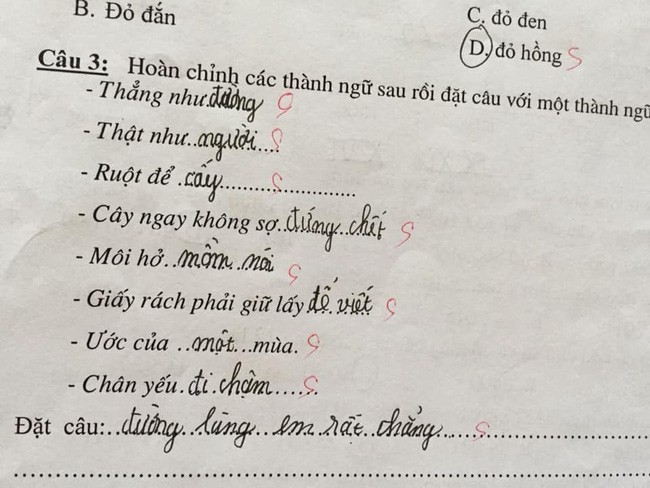 B. Đỏ đắn
C. đỏ đen
D. đỏ hồng S
Câu 3: Hoàn chỉnh các thành ngữ sau rồi đặt câu với một thành ngữ
- Thẳng như đường S
- Thật như..người.... S
- Ruột để .cấy.................... S
- Cây ngay không sợ.đứng..chết S
- Môi hở..mồm..nói S
- Giấy rách phải giữ lấy để viết S
- Ước của ..một...mùa. S
- Chân yếu.đi chậm...... S
Đặt câu:..đường..làng..em..rất..chẳng.... S